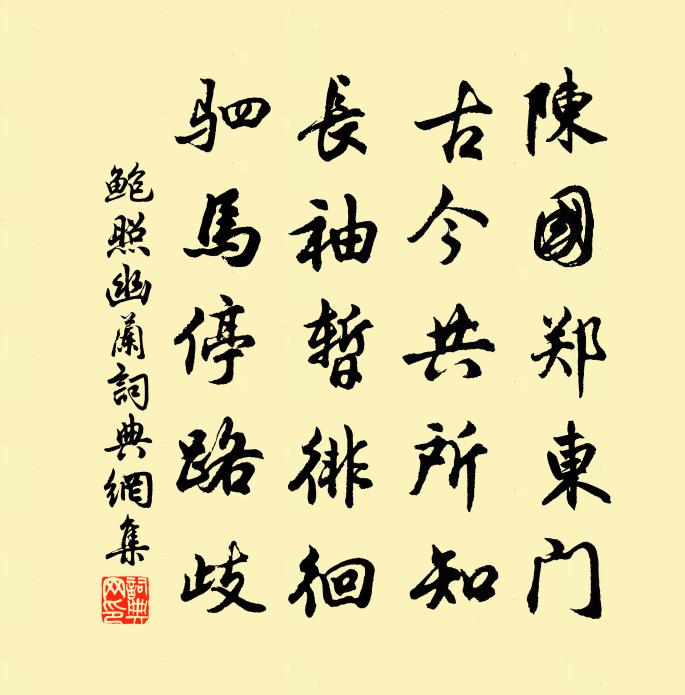 陳國郑東门
古今共所知
長袖暫徘徊
驷馬停路歧
鲍照幽蘭詞典網集
詞典网印